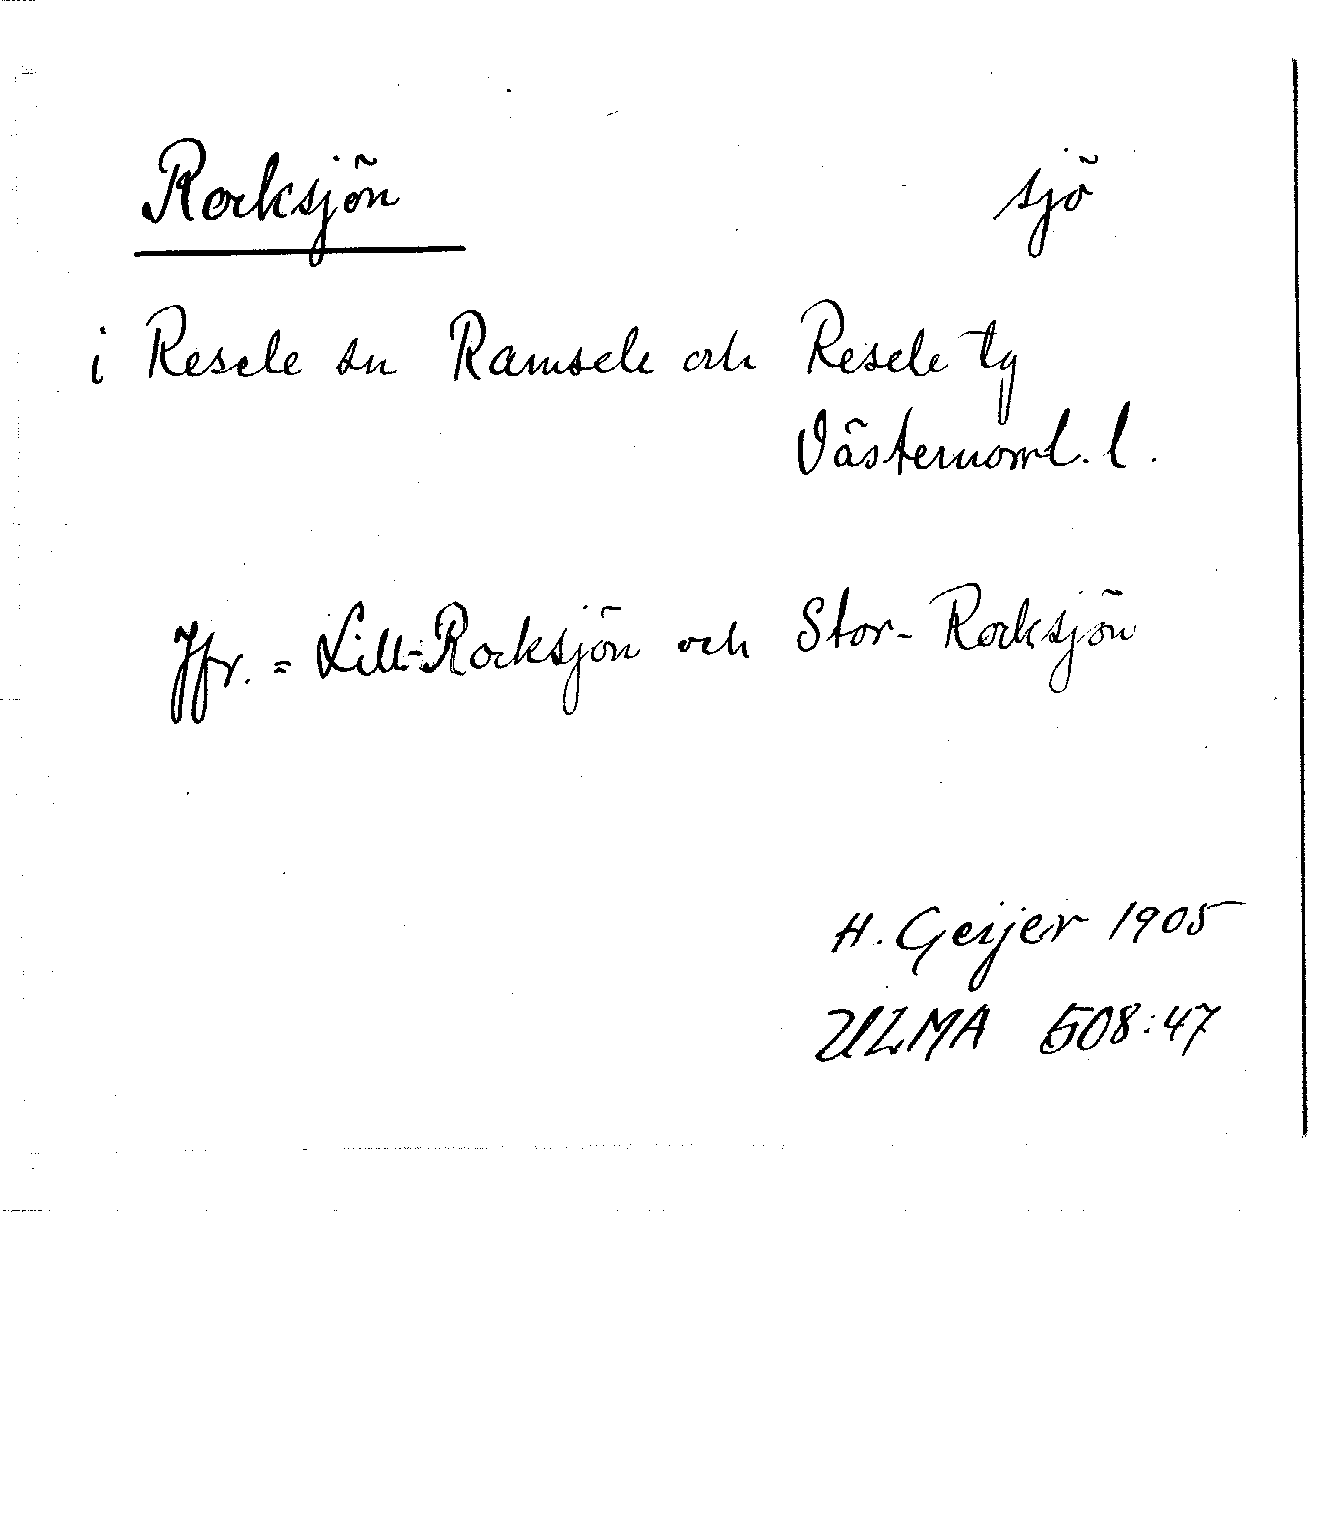 Rocksjön sjö
i Resele sn Ramsele och Resele tg
Västernorrl. l.
Jfr. = Lill-Rocksjön och Stor-Rocksjön
H. Geijer 1905
ULMA 508:47